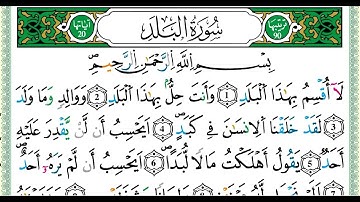 ترتيبها 90 سُورَةُ الْبَلَدِ آياتها 20
بِسْمِ اللَّهِ الرَّحْمَٰنِ الرَّحِيمِ
لَا أُقْسِمُ بِهَٰذَا الْبَلَدِ ① وَأَنْتَ حِلٌّ بِهَٰذَا الْبَلَدِ ② وَوَالِدٍ وَمَا وَلَدَ
③ لَقَدْ خَلَقْنَا الْإِنسَانَ فِي كَبَدٍ ④ أَيَحْسِبُ أَن لَّنْ يَقْدِرَ عَلَيْهِ
أَحَدٌ ⑤ يَقُولُ أَهْلَكْتُ مَالًا لُبَدًا ⑥ أَيَحْسِبُ أَن لَّمْ يَرَهُ أَحَدٌ